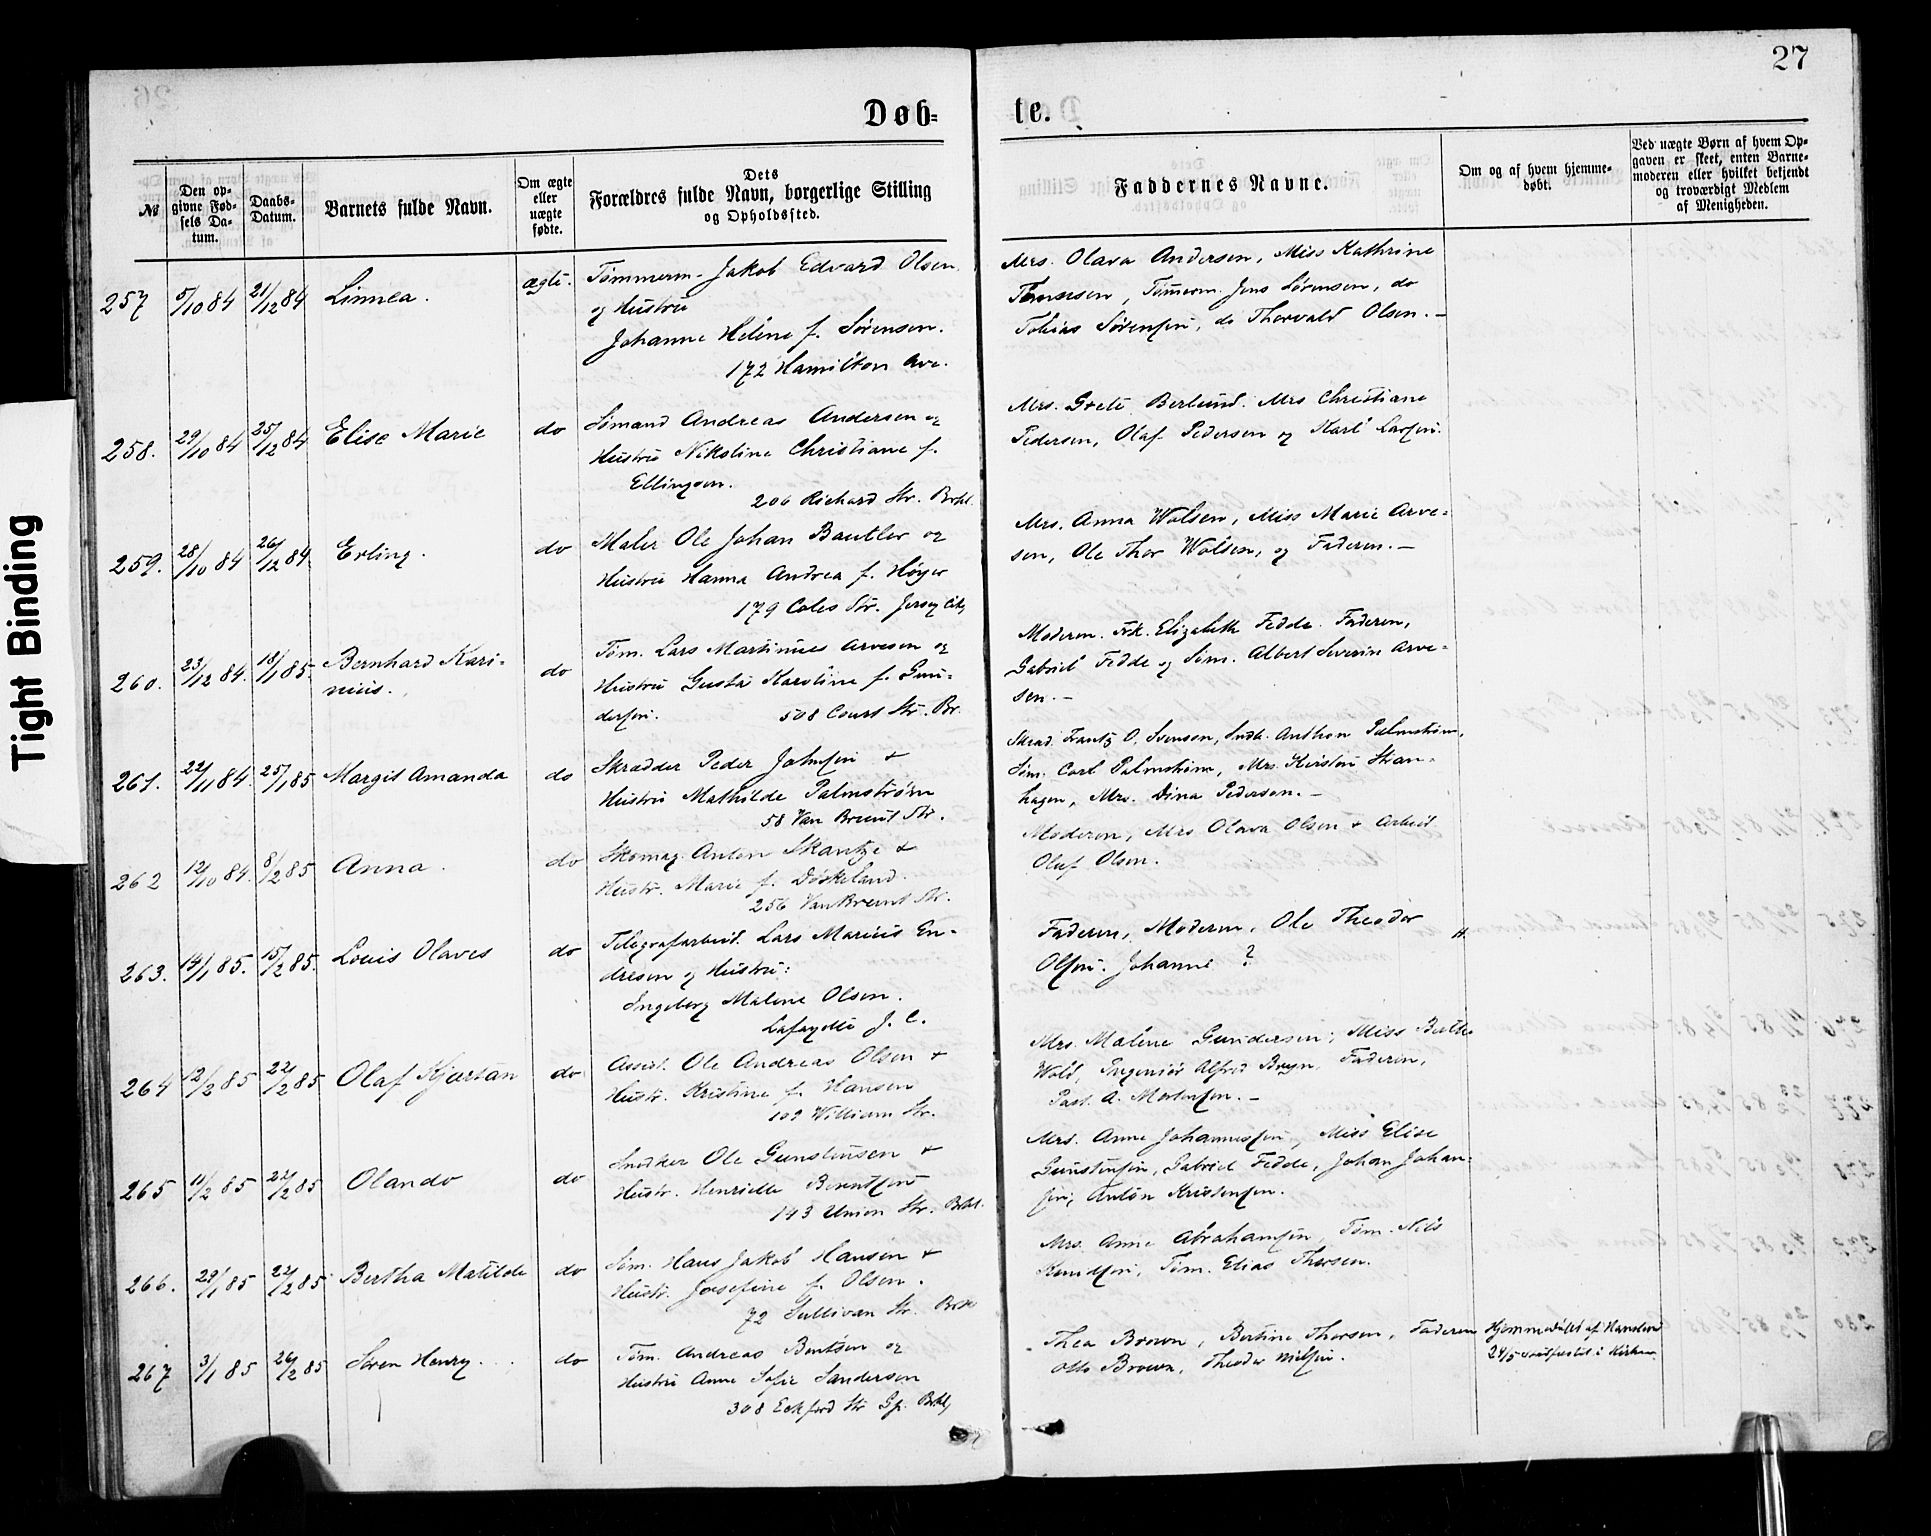 27
Døb-
te.
№
Den op-
givne Fød-
sels Da-
tum.
Daabs-
Datum.
Barnets fulde Navn.
Om ægte
eller
uægte
fødte.
Dets
Forældres fulde Navn, borgerlige Stilling
og Opholdssted.
Faddernes Navne.
Om og af hvem hjemme-
døbt.
Ved uægte Børn af hvem Op-
gaven er skeet, enten Barne-
moderen eller hvilket bekjendt
og troværdigt Medlem
af Menigheden.
257 5/10 84 21/12 84 Linnea. ægte. Tømmerm. Jakob Edvard Olsen
og Hustru
Johanne Heléne f. Sørensen.
172 Hamilton Ave.
Mrs. Olava Andersen, Miss Kathrine
Tønnesen, Tømerm. Jens Sørensen, do
Tobias Sørensen, do Thorvald Olsen.-
258. 29/10 84 25/12 84 Elise Marie do Sømand Andreas Andersen og
Hustru Nikoline Christiane f.
Ellingsen.
206 Richard Str. Brkl.
Mrs. Grete Berlund. Mrs Christiane
Pedersen, Olaf Pedersen og Karl Larsen.
259. 28/10 84 26/12 84. Erling. do Maler Ole Johan Bautler og
Hustru Hanna Andrea f. Høyer
179 Coles Str. Jersey City
Mrs. Anna Wolsen, Miss Marie Arve-
sen, Ole Thor Wolsen, og Faderen.-
260. 23/12 84. 18/1 85. Bernhard Kari-
nius. do Tøm. Lars Martinius Arvesen og
Hustru Gusta Karoline f. Gun-
dersen. 508 Court Str. Br.
Moderen. Frk. Elizabeth Fedde. Faderen,
Gabriel Fedde og Søm. Albert Severin Arve-
sen.-
261. 22/1 84. 25/1 85 Margit Amanda do Skrædder Peder Johnsen &
Hustru Mathilde Palmstrøm
58 Van Brunt Str.
Skræd. Frantz O. Svensen, Snedk. Anthon Palmstrøm,
Søm. Carl Palmstrøm, Mrs. Kirsten Stran-
hagen, Mrs. Dina Pedersen.-
262 12/10 84. 8/2 85 Anna. do Skomag. Anton Skantze &
Hustr. Marie f. Døskeland.
256 Van Brunt Str.
Moderen, Mrs Olava Olsen & Arbeid
Oluf Olsen.
263. 14/1 85. 15/2 85. Louis Olaves do Telegrafarbeid. Lars Marius En-
dresen og Hustru:
Ingeborg Malene Olsen.
Lafayette J. C.
Faderen, Moderen, Ole Theodor
Olsen. Johanne ?
264 12/2 85 22/2 85 Olaf Kjartan do Assist. Ole Andreas Olsen &
Hustr. Kristine f. Hansen
109 William Str.
Mrs. Malene Gundersen; Miss Berthe
Wold, Ingeniør Alfred Bryn, Faderen,
Past. A. Mortensen.-
265 11/2 85 22/2 85 Olando do Snedker Ole Gunstensen &
Hustr. Henriette Berentsen
143 Union Str. Brkl.
Mrs. Anne Johannessen, Miss Elise
Gunstensen, Gabriel Fedde, Johan Johan-
sen, Anton Kristensen.
266. 29/1 85 22/2 85 Bertha Matilde do Søm. Hans Jakob Hansen &
Hustr. Josefine f. Olsen.
72 Sullivan Str. Brkl
Mrs. Anne Abrahamsen, Tøm. Nils
Knudsen, Tøm. Elias Thorsen.
267 3/1 85 26/2 85 Søren Henry. do Tøm. Andreas Bentsen og
Hustru Anne Sofie Sandersen
308 Eckford Str Gp. Brkl,
Thea Brown, Bertine Thorsen, Faderen
Otto Brown, Theodor Nielsen.
Hjemmedøbt af
24/5 stadfæstet i Kirken
Tight Binding